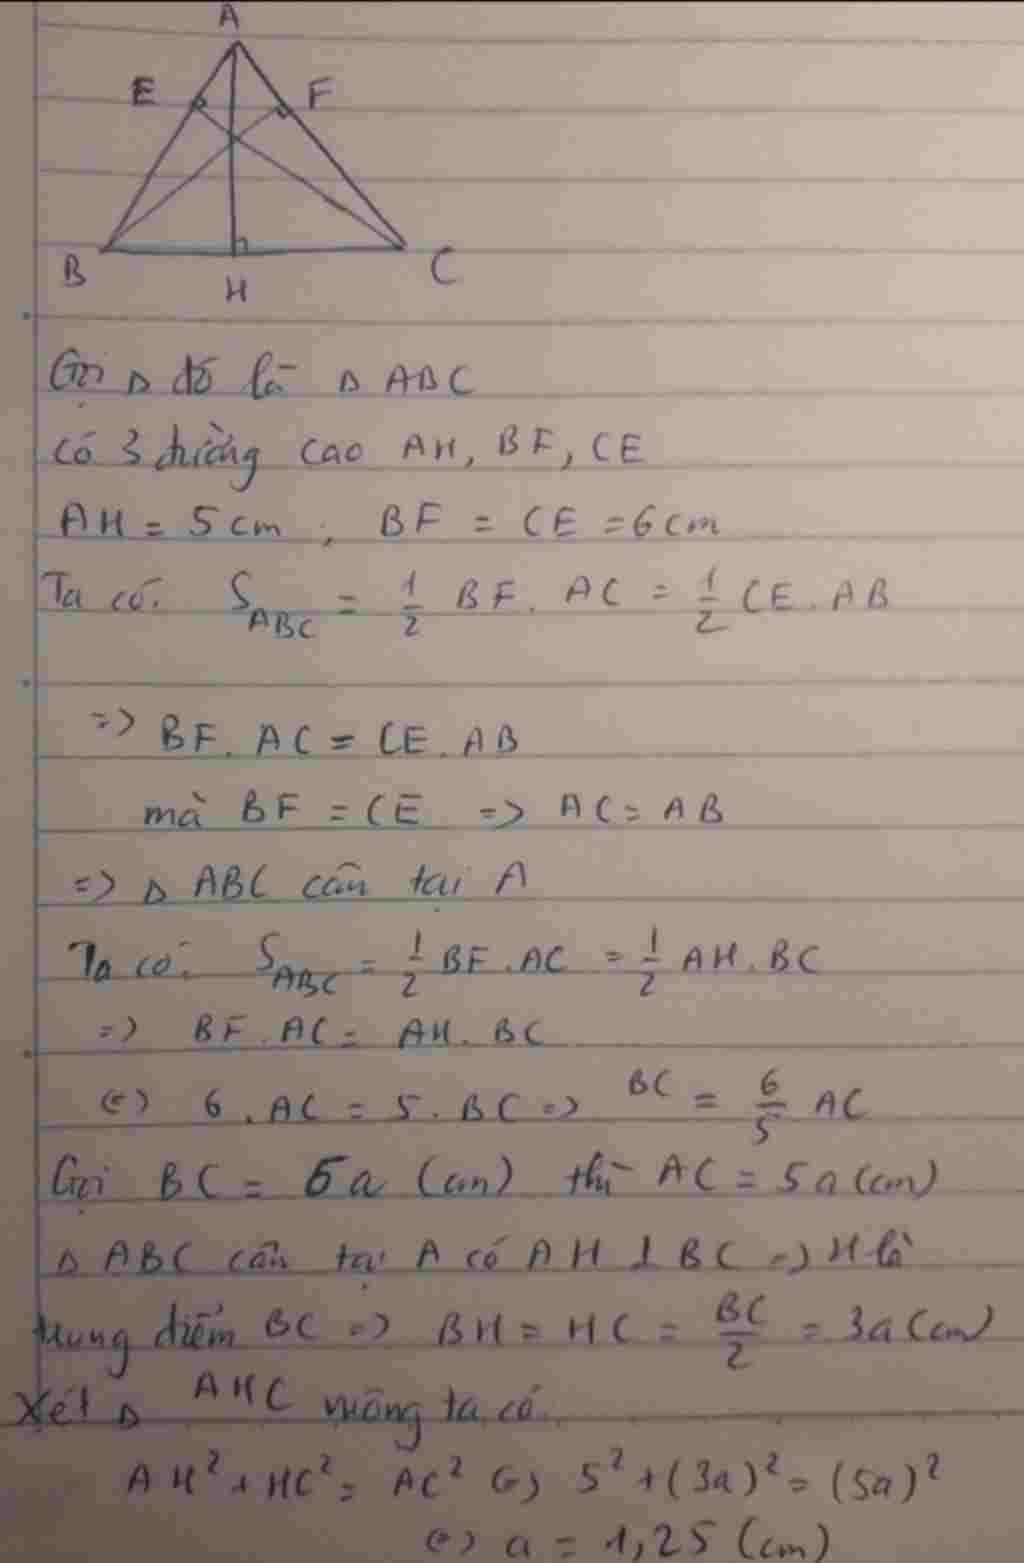 A
E F
B H C
Gọi Δ đó là Δ ABC
có 3 đường cao AH, BF, CE
AH = 5cm ; BF = CE = 6cm
Ta có: S_ABC = 1/2 BF. AC = 1/2 CE. AB
=> BF. AC = CE. AB
mà BF = CE => AC = AB
=> Δ ABC cân tại A
Ta có: S_ABC = 1/2 BF. AC = 1/2 AH. BC
=> BF. AC = AH. BC
(=) 6. AC = 5. BC => BC = 6/5 AC
Gọi BC = 6a (cm) thì AC = 5a (cm)
Δ ABC cân tại A có AH ⊥ BC => H là
trung điểm BC => BH = HC = BC/2 = 3a (cm)
Xét Δ AHC vuông ta có.
AH² + HC² = AC² (=) 5² + (3a)² = (5a)²
(=) a = 1,25 (cm)